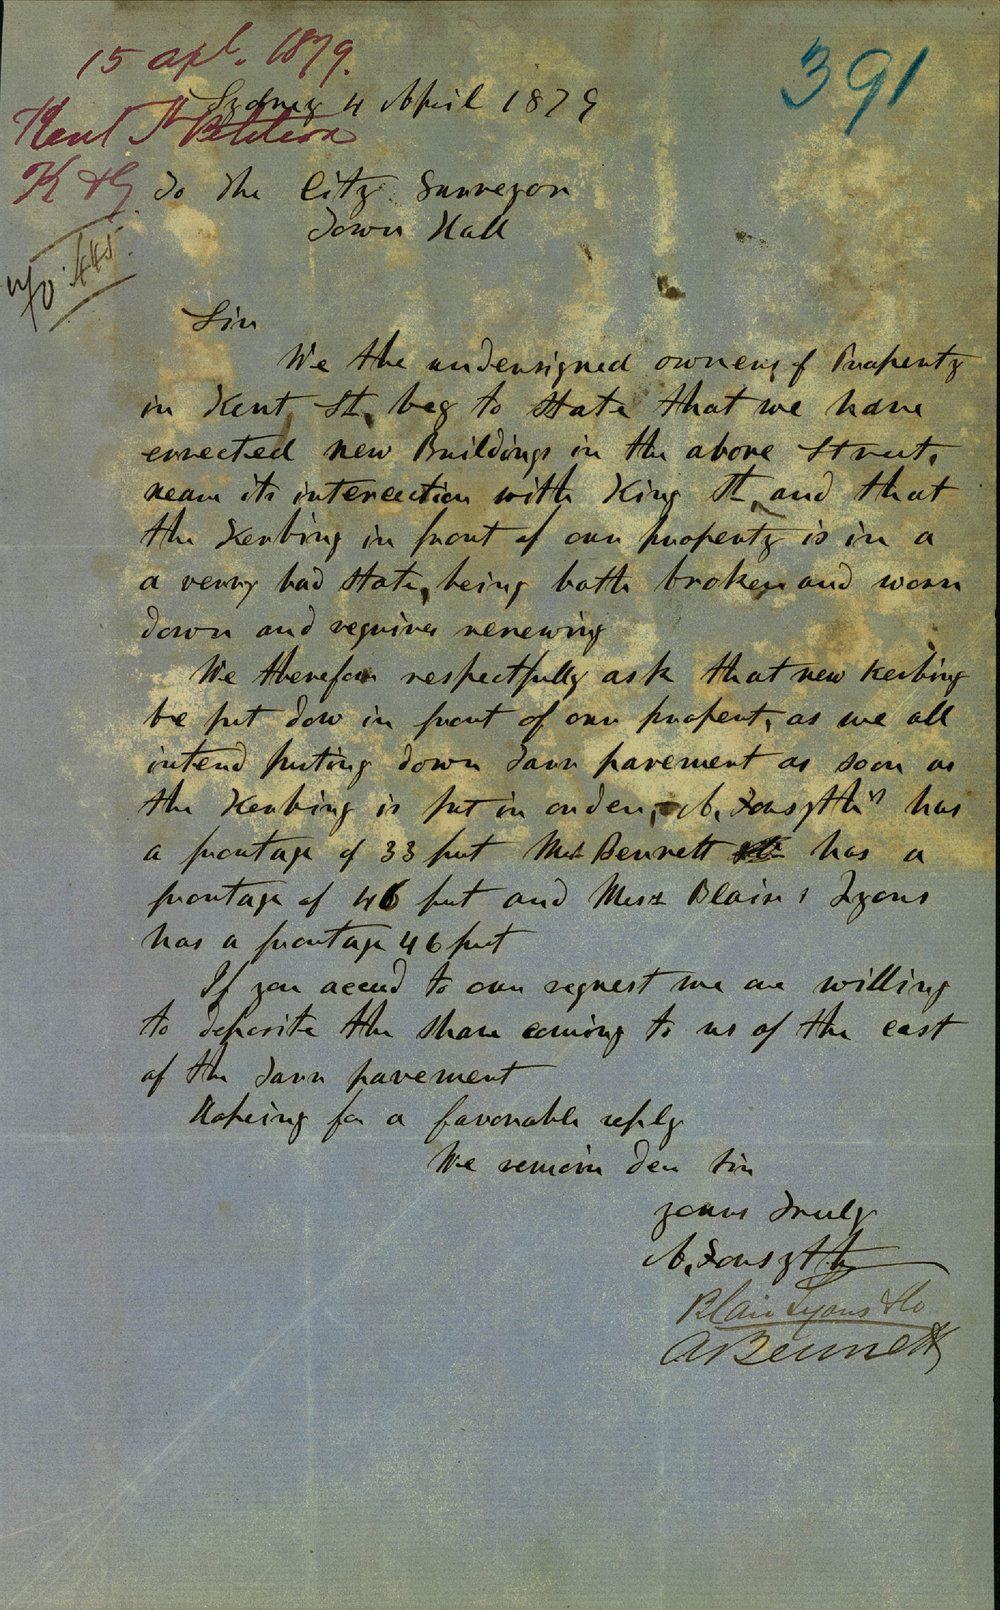 15 Apl. 1879.
391
Sydney 4 April 1879
Kent St Petition
K & G
To The City Surveyor
Town Hall
No 445.
Sir
We the undersigned owners of Property
in Kent St, beg to state that we have
errected new Buildings in the above Street,
near its interection with King St, and that
the Kerbing in front of our property is in a
a verry bad state, being both broken and worn
down and requires renewing
We therefore respectfully ask that new kerbing
be put dow in front of our propert, as we all
intend puting down Tarr pavement as soon as
the Kerbing is put in order, A. Forsyth's has
a frontage of 33 feet Mr Bennett has a
frontage of 46 feet and Messrs Blair & Lyons
has a frontage 46 feet
If you acced to our request we are willing
to deposite the share coming to us of the cost
of the Tarr pavement
Hopeing for a favorable reply
We remain Der Sir
yours Truly
A. Forsyth
Blair Lyons & Co
A Bennett